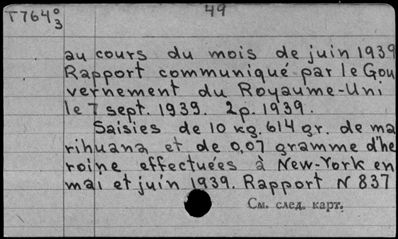 T764⁰3 49
au cours du mois de juin 1939
Rapport communiqué par le Gou
vernement du Royaume-Uni
le 7 sept. 1939. 2p. 1939.
Saisies de 10 kg. 614 gr. de ma
rihuana et de 0,07 gramme d'he
roine effectuées à New-York en
mai et juin 1939. Rapport N 837
См. след. карт.